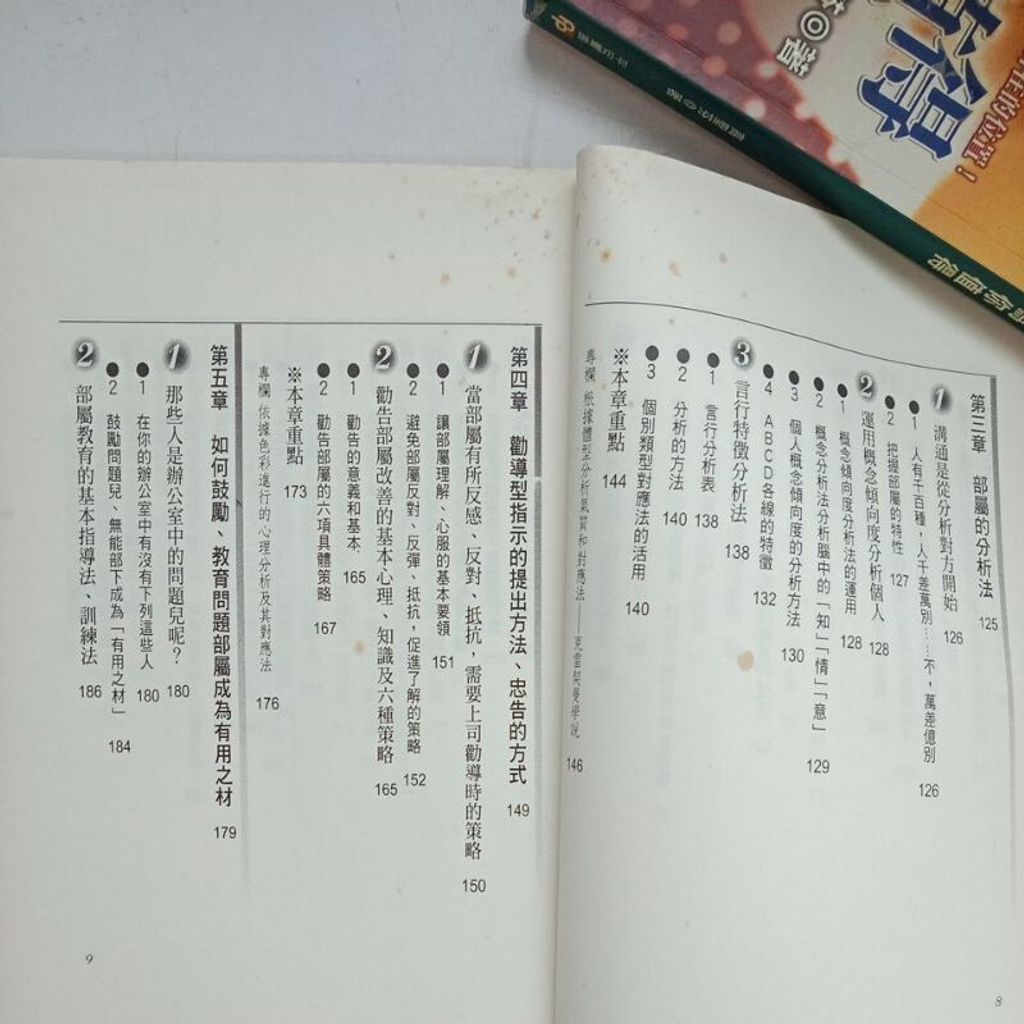 第三章 部屬的分析法 125
1 溝通是從分析對方開始 126
●1 人有千百種，人千差萬別……不，萬差億別 126
●2 把握部屬的特性 127
2 運用概念傾向度分析個人 128
●1 概念傾向度分析法的運用 128
●2 概念分析法分析腦中的「知」「情」「意」 129
●3 個人概念傾向度的分析方法 130
●4 ABCD各線的特徵 132
3 言行特徵分析法 138
●1 言行分析表 138
●2 分析的方法 140
●3 個別類型對應法的活用 140
※本章重點 144
專欄 根據體型分析氣質和對應法 克雷契曼學說 146
8
第四章 勸導型指示的提出方法、忠告的方式 149
1 當部屬有所反感、反對、抵抗，需要上司勸導時的策略 150
●1 讓部屬理解、心服的基本要領 151
●2 避免部屬反對、反彈、抵抗，促進了解的策略 152
2 勸告部屬改善的基本心理、知識及六種策略 165
●1 勸告的意義和基本 165
●2 勸告部屬的六項具體策略 167
※本章重點 173
專欄 依據色彩進行的心理分析及其對應法 176
第五章 如何鼓勵、教育問題部屬成為有用之材 179
1 那些人是辦公室中的問題兒呢？ 180
●1 在你的辦公室中有沒有下列這些人 180
●2 鼓勵問題兒、無能部下成為「有用之材」 184
2 部屬教育的基本指導法、訓練法 186
9
◎著
值得
的位置！
你值得